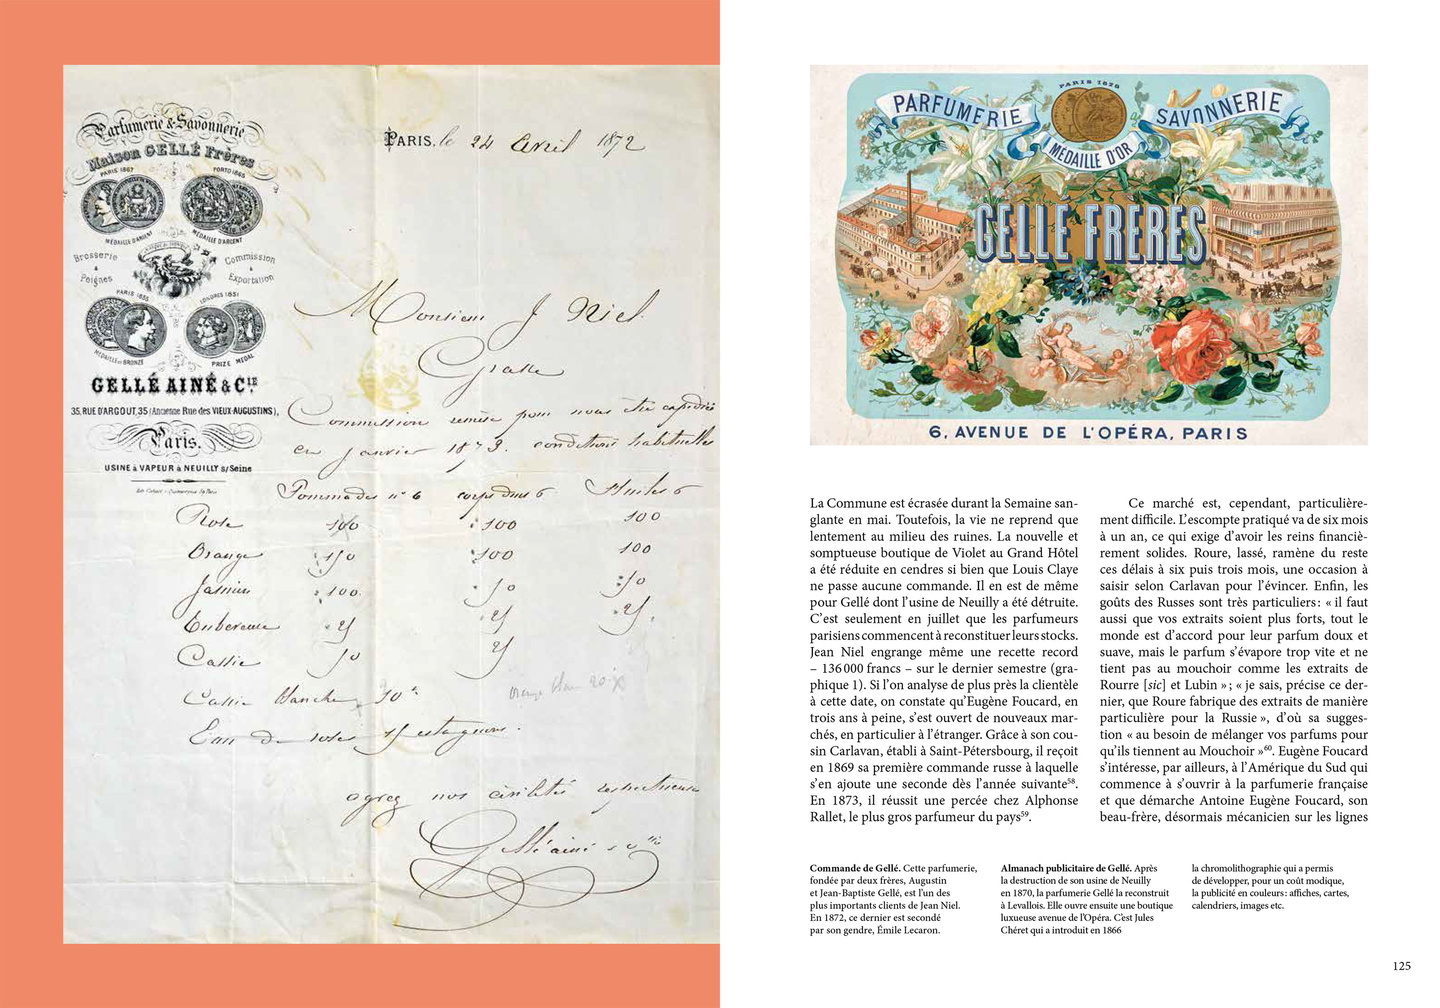 Parfumerie & Savonnerie
Maison GELLÉ Frères
PARIS 1867
PORTO 1865
MÉDAILLE D'ARGENT
MÉDAILLE D'ARGENT
Brosserie
&
Peignes
Commission
&
Exportation
PARIS 1855
LONDRES 1851
MÉDAILLE DE BRONZE
PRIZE MEDAL
GELLÉ AINÉ & CIE
35, RUE D'ARGOUT, 35 (Ancienne Rue des VIEUX-AUGUSTINS),
Paris.
USINE à VAPEUR à NEUILLY s/Seine
PARIS, le 24 Avril 1872
Monsieur J Niel
Grasse
Commission remise pour nous être expédiée
en Janvier 1873. conditions habituelles
Pommades n° 6 corps durs 6 Huiles 6
Rose 100 100 100
Orange 150 100 100
Jasmin 100 50 50
Tubereuse 25 25 25
Cassie 50 25
Cassie blanche 10
Eau de roses 15 estagnons.
agréez nos civilités respectueuses
Gellé ainé & Cie
PARIS 1878
PARFUMERIE
SAVONNERIE
MÉDAILLE D'OR
GELLÉ FRÈRES
6, AVENUE DE L'OPÉRA, PARIS
La Commune est écrasée durant la Semaine san-
glante en mai. Toutefois, la vie ne reprend que
lentement au milieu des ruines. La nouvelle et
somptueuse boutique de Violet au Grand Hôtel
a été réduite en cendres si bien que Louis Claye
ne passe aucune commande. Il en est de même
pour Gellé dont l'usine de Neuilly a été détruite.
C'est seulement en juillet que les parfumeurs
parisiens commencent à reconstituer leurs stocks.
Jean Niel engrange même une recette record
– 136 000 francs – sur le dernier semestre (gra-
phique 1). Si l'on analyse de plus près la clientèle
à cette date, on constate qu'Eugène Foucard, en
trois ans à peine, s'est ouvert de nouveaux mar-
chés, en particulier à l'étranger. Grâce à son cou-
sin Carlavan, établi à Saint-Pétersbourg, il reçoit
en 1869 sa première commande russe à laquelle
s'en ajoute une seconde dès l'année suivante⁵⁸.
En 1873, il réussit une percée chez Alphonse
Rallet, le plus gros parfumeur du pays⁵⁹.
Ce marché est, cependant, particulière-
ment difficile. L'escompte pratiqué va de six mois
à un an, ce qui exige d'avoir les reins financiè-
rement solides. Roure, lassé, ramène du reste
ces délais à six puis trois mois, une occasion à
saisir selon Carlavan pour l'évincer. Enfin, les
goûts des Russes sont très particuliers : « il faut
aussi que vos extraits soient plus forts, tout le
monde est d'accord pour leur parfum doux et
suave, mais le parfum s'évapore trop vite et ne
tient pas au mouchoir comme les extraits de
Rourre [sic] et Lubin » ; « je sais, précise ce der-
nier, que Roure fabrique des extraits de manière
particulière pour la Russie », d'où sa sugges-
tion « au besoin de mélanger vos parfums pour
qu'ils tiennent au Mouchoir »⁶⁰. Eugène Foucard
s'intéresse, par ailleurs, à l'Amérique du Sud qui
commence à s'ouvrir à la parfumerie française
et que démarche Antoine Eugène Foucard, son
beau-frère, désormais mécanicien sur les lignes
Commande de Gellé. Cette parfumerie,
fondée par deux frères, Augustin
et Jean-Baptiste Gellé, est l'un des
plus importants clients de Jean Niel.
En 1872, ce dernier est secondé
par son gendre, Émile Lecaron.
Almanach publicitaire de Gellé. Après
la destruction de son usine de Neuilly
en 1870, la parfumerie Gellé la reconstruit
à Levallois. Elle ouvre ensuite une boutique
luxueuse avenue de l'Opéra. C'est Jules
Chéret qui a introduit en 1866
la chromolithographie qui a permis
de développer, pour un coût modique,
la publicité en couleurs : affiches, cartes,
calendriers, images etc.
125